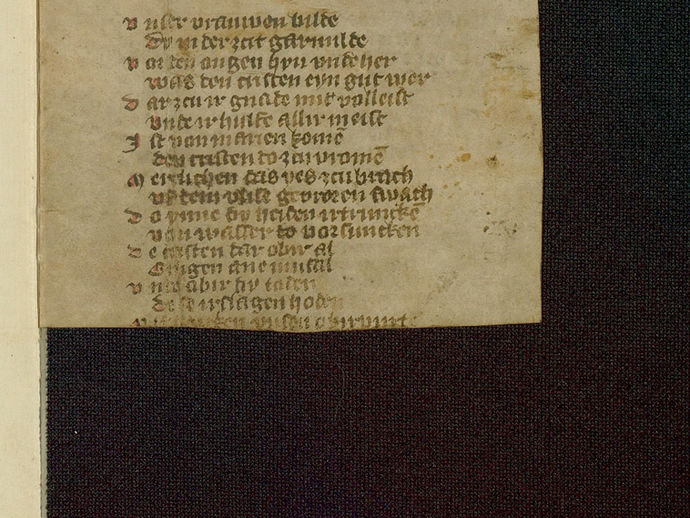 v nser vrauwen bilde
Dy in der zcit gar milde
v or den ougen hyn vnde her
was den cristen eyn gut wer
D ar zcu ir gnade mit volleist
vnde ir hulfe allir meist
I st von marien komē
den cristen do zcu vromē
M erlichen das yes zcu brach
vf dem vlise gevroren swach
D o ynne dy heiden irtrunckē
von wasser do vorsuncken
D e cristen dar obir al
Gingen ane mital
v nd abir dy toden
De se irslagen hoden